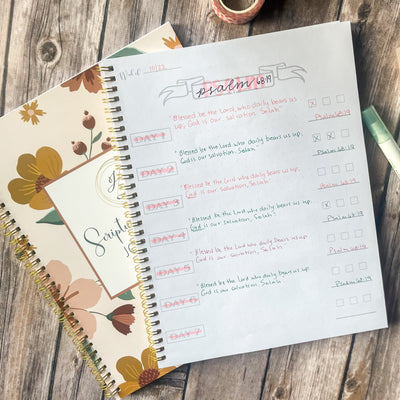 Week of: 11/22
psalm 68:19
"Blessed be the Lord, who daily bears us
up, God is our salvation. Selah"
DAY 1
X
Psalm 68:19
"Blessed be the Lord who daily bears us up.
God is our salvation. Selah"
DAY 2
X X
Psalm 68:19
"Blessed be the Lord who daily bears us up.
God is our salvation. Selah"
DAY 3
X
Psalm 68:19
"Blessed be the Lord who daily bears us up.
God is our salvation. Selah"
DAY 4
X
Psalm 68:19
"Blessed be the Lord who daily bears us up.
God is our salvation. Selah"
DAY 5
Psalm 68:19
"Blessed be the Lord who daily bears us up.
God is our salvation. Selah"
DAY 6
Psalm 68:19
DAY 7